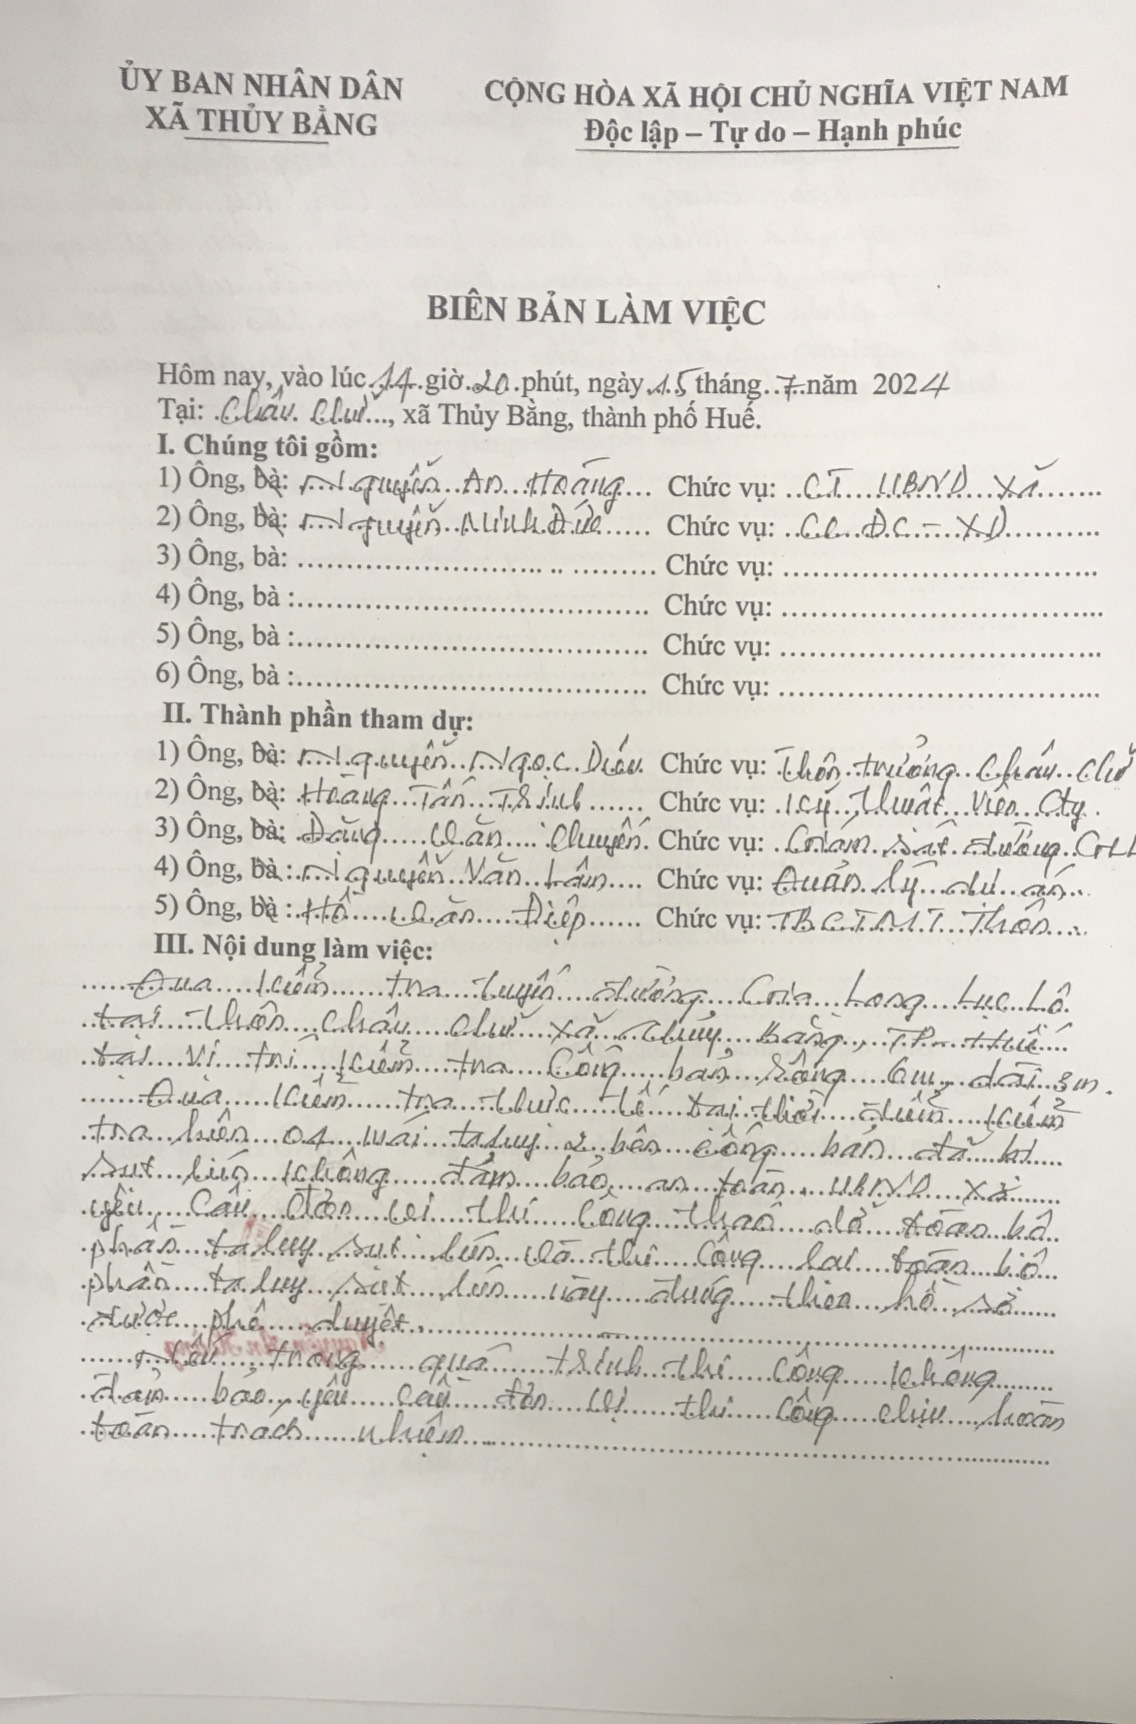 ỦY BAN NHÂN DÂN
XÃ THỦY BẰNG
CỘNG HÒA XÃ HỘI CHỦ NGHĨA VIỆT NAM
Độc lập – Tự do – Hạnh phúc
BIÊN BẢN LÀM VIỆC
Hôm nay, vào lúc 14 giờ 20 phút, ngày 15 tháng 7 năm 2024
Tại: Châu Chữ, xã Thủy Bằng, thành phố Huế.
I. Chúng tôi gồm:
1) Ông, bà: Nguyễn An Hoàng Chức vụ: CT UBND xã
2) Ông, bà: Nguyễn Minh Đức Chức vụ: CC ĐC - XD
3) Ông, bà: Chức vụ:
4) Ông, bà : Chức vụ:
5) Ông, bà : Chức vụ:
6) Ông, bà : Chức vụ:
II. Thành phần tham dự:
1) Ông, bà: Nguyễn Ngọc Chức vụ: Thôn trưởng Châu Chữ
2) Ông, bà: Hoàng Tấn Chức vụ: Kỹ thuật viên Cty
3) Ông, bà: Đặng Văn Chuyến Chức vụ: Giám sát đường
4) Ông, bà : Nguyễn Văn Lâm Chức vụ: Quản lý dự án
5) Ông, bà : Hồ Văn Điệp Chức vụ: TBCTMT Thôn
III. Nội dung làm việc:
Qua kiểm tra tuyến đường Gia Long Lục Lộ
tại thôn Châu Chữ xã Thủy Bằng, TP Huế
tại vị trí kiểm tra Cống bản Rộng 6m dài 8m.
Qua kiểm tra thực tế tại thời điểm kiểm
tra hiện 04 mái taluy 2 bên cống bản đã bị
sụt lún không đảm bảo an toàn. UBND xã
yêu cầu đơn vị thi công tháo dở toàn bộ
phần taluy sụt lún và thi công lại toàn bộ
phần taluy sụt lún này đúng theo hồ sơ
được phê duyệt.
Nếu trong quá trình thi công không
đảm bảo, yêu cầu đơn vị thi công chịu hoàn
toàn trách nhiệm